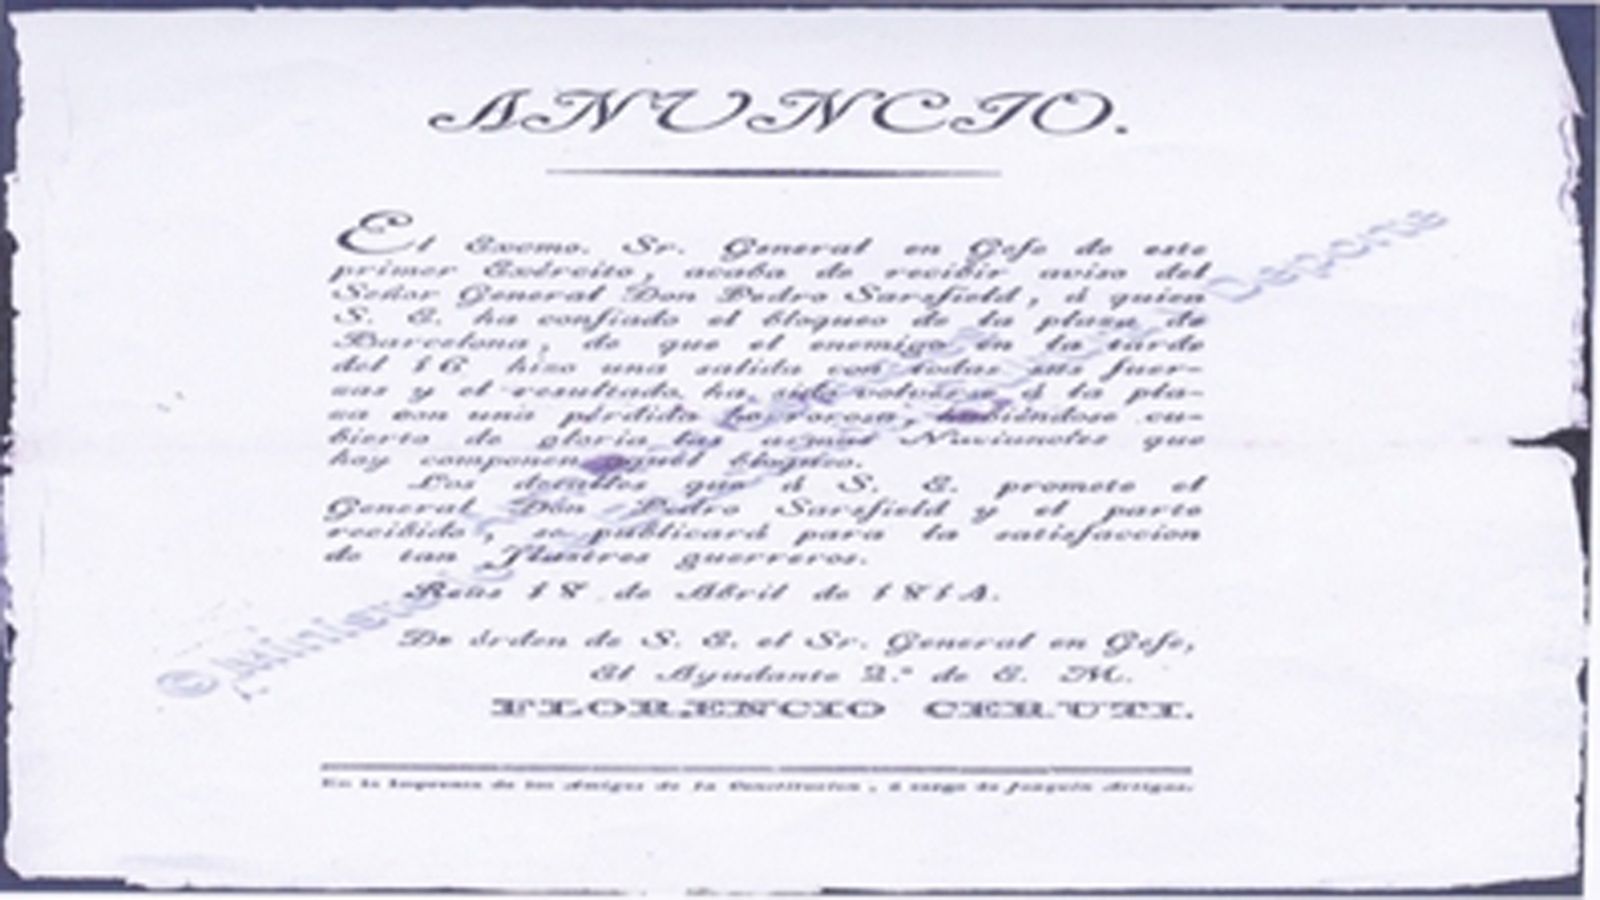 ANUNCIO.
El Excmo. Sr. General en Gefe de este
primer Exército, acaba de recibir aviso del
Señor General Don Pedro Sarsfield, á quien
S. E. ha confiado el bloqueo de la plaza de
Barcelona, de que el enemigo en la tarde
del 16 hizo una salida con todas sus fuer-
zas y el resultado ha sido volverse á la pla-
za con una pérdida horrorosa, habiéndose cu-
bierto de gloria las armas Nacionales que
hoy componen aquel bloqueo.
Los detalles que á S. E. promete el
General Don Pedro Sarsfield y el parte
recibido, se publicará para la satisfaccion
de tan Ilustres guerreros.
Reus 18 de Abril de 1814.
De órden de S. E. el Sr. General en Gefe,
El Ayudante 2.º de E. M.
FLORENCIO CERUTI.
En la Imprenta de los Amigos de la Constitucion, á cargo de Joaquin Artigas.
© Ministerio Deporte